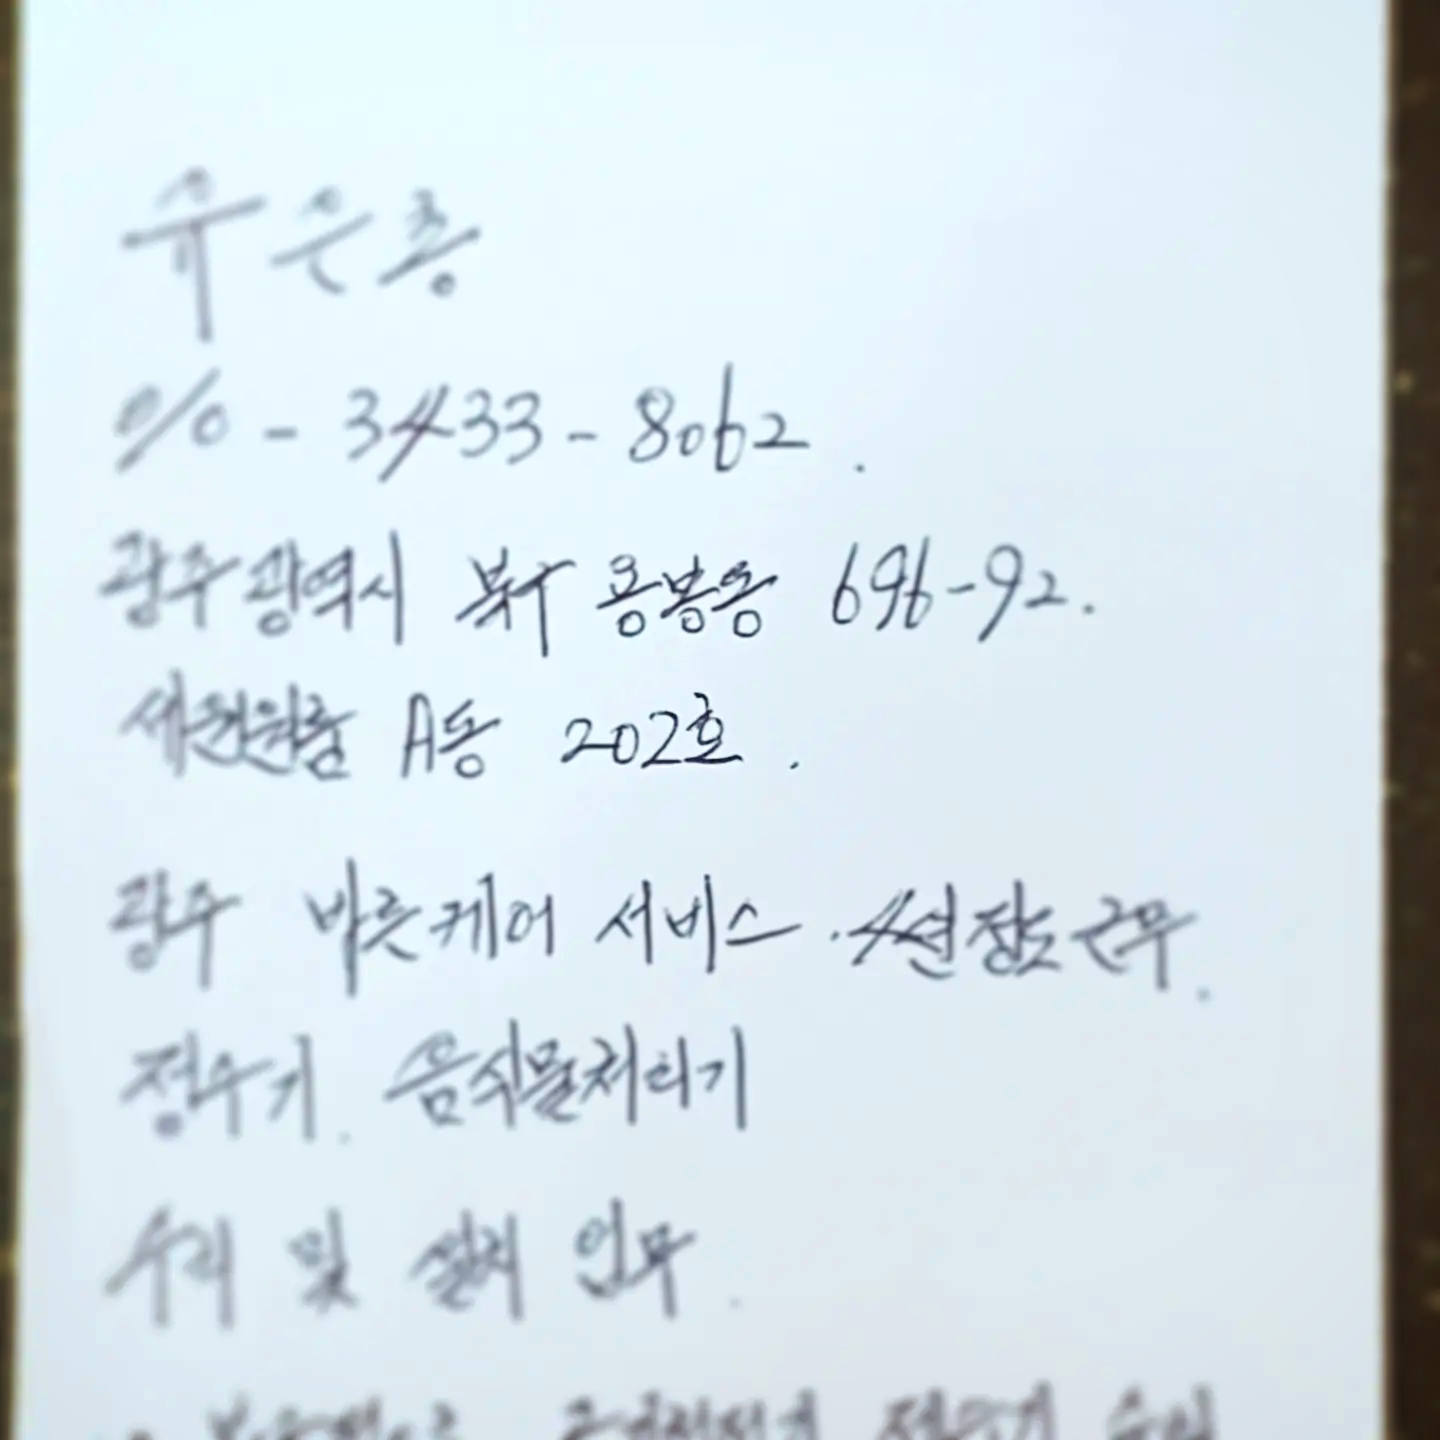 유은총
010-3433-8062.
광주광역시 북구 용봉동 696-92.
세원원룸 A동 202호.
광주 바른케어 서비스. 4년정도 근무.
정수기. 음식물처리기
수리 및 설치 업무.